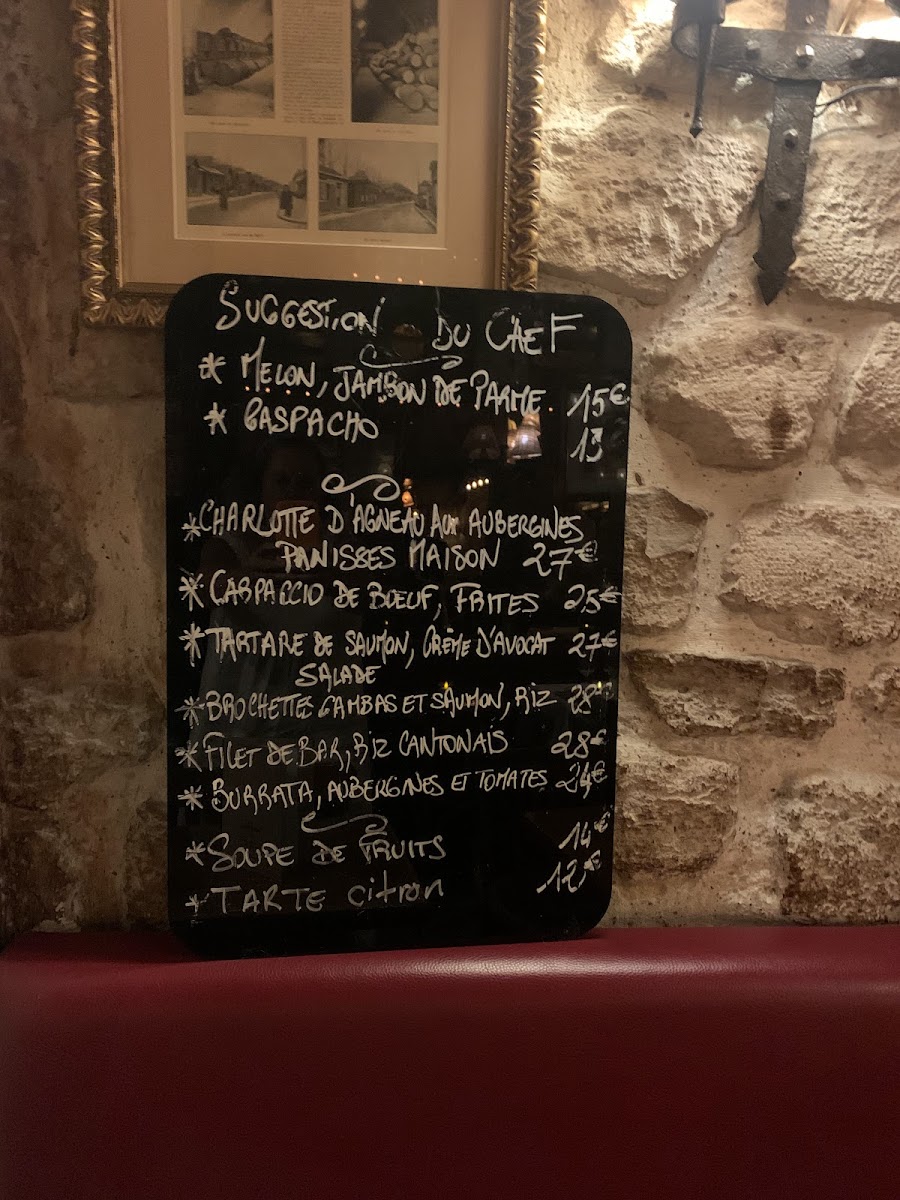 SUGGESTION DU CHEF
* MELON, JAMBON DE PARME 15€
* GASPACHO 13
* CHARLOTTE D'AGNEAU AUX AUBERGINES
PANISSES MAISON 27€
* CARPACCIO DE BOEUF, FRITES 25€
* TARTARE DE SAUMON, CRÈME D'AVOCAT 27€
SALADE
* BROCHETTES GAMBAS ET SAUMON, RIZ 28€
* FILET DE BAR, RIZ CANTONAIS 28€
* BURRATA, AUBERGINES ET TOMATES 24€
* SOUPE DE FRUITS 14€
* TARTE citron 12€